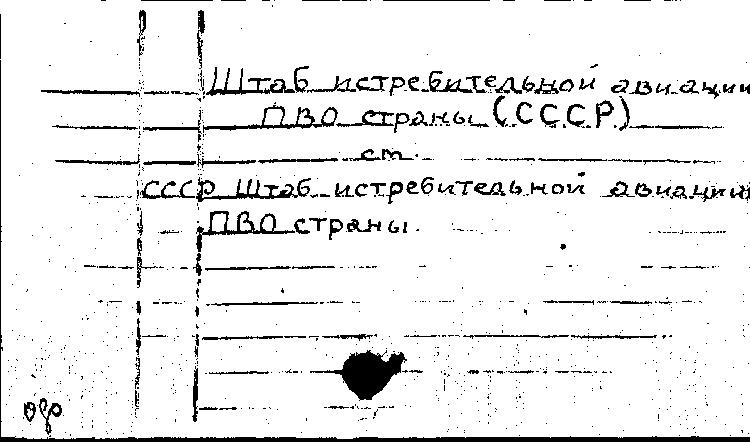 Штаб истребительной авиации
ПВО страны (СССР)
ст.
СССР Штаб истребительной авиации
ПВО страны.